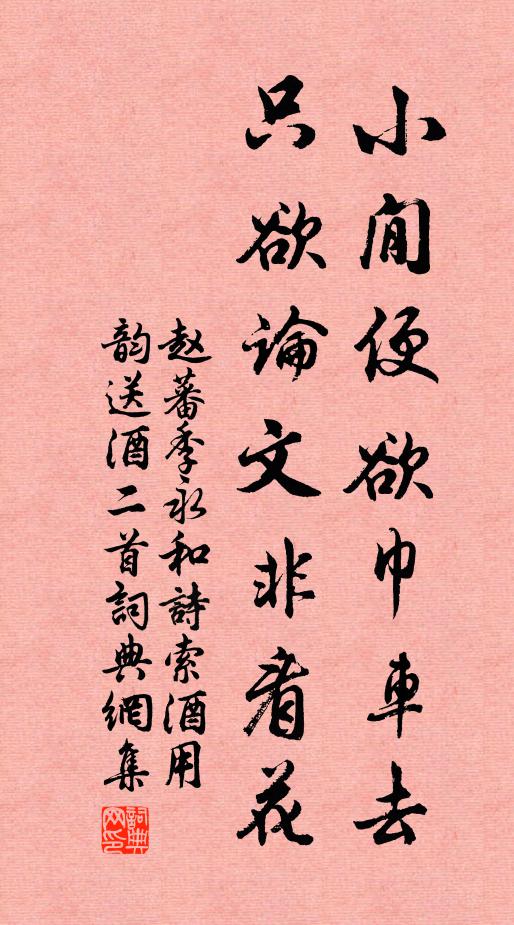 小閒便欲巾車去
只欲論文非看花
赵蕃季永和詩索酒用
韵送酒二首詞典網集
詞典网印